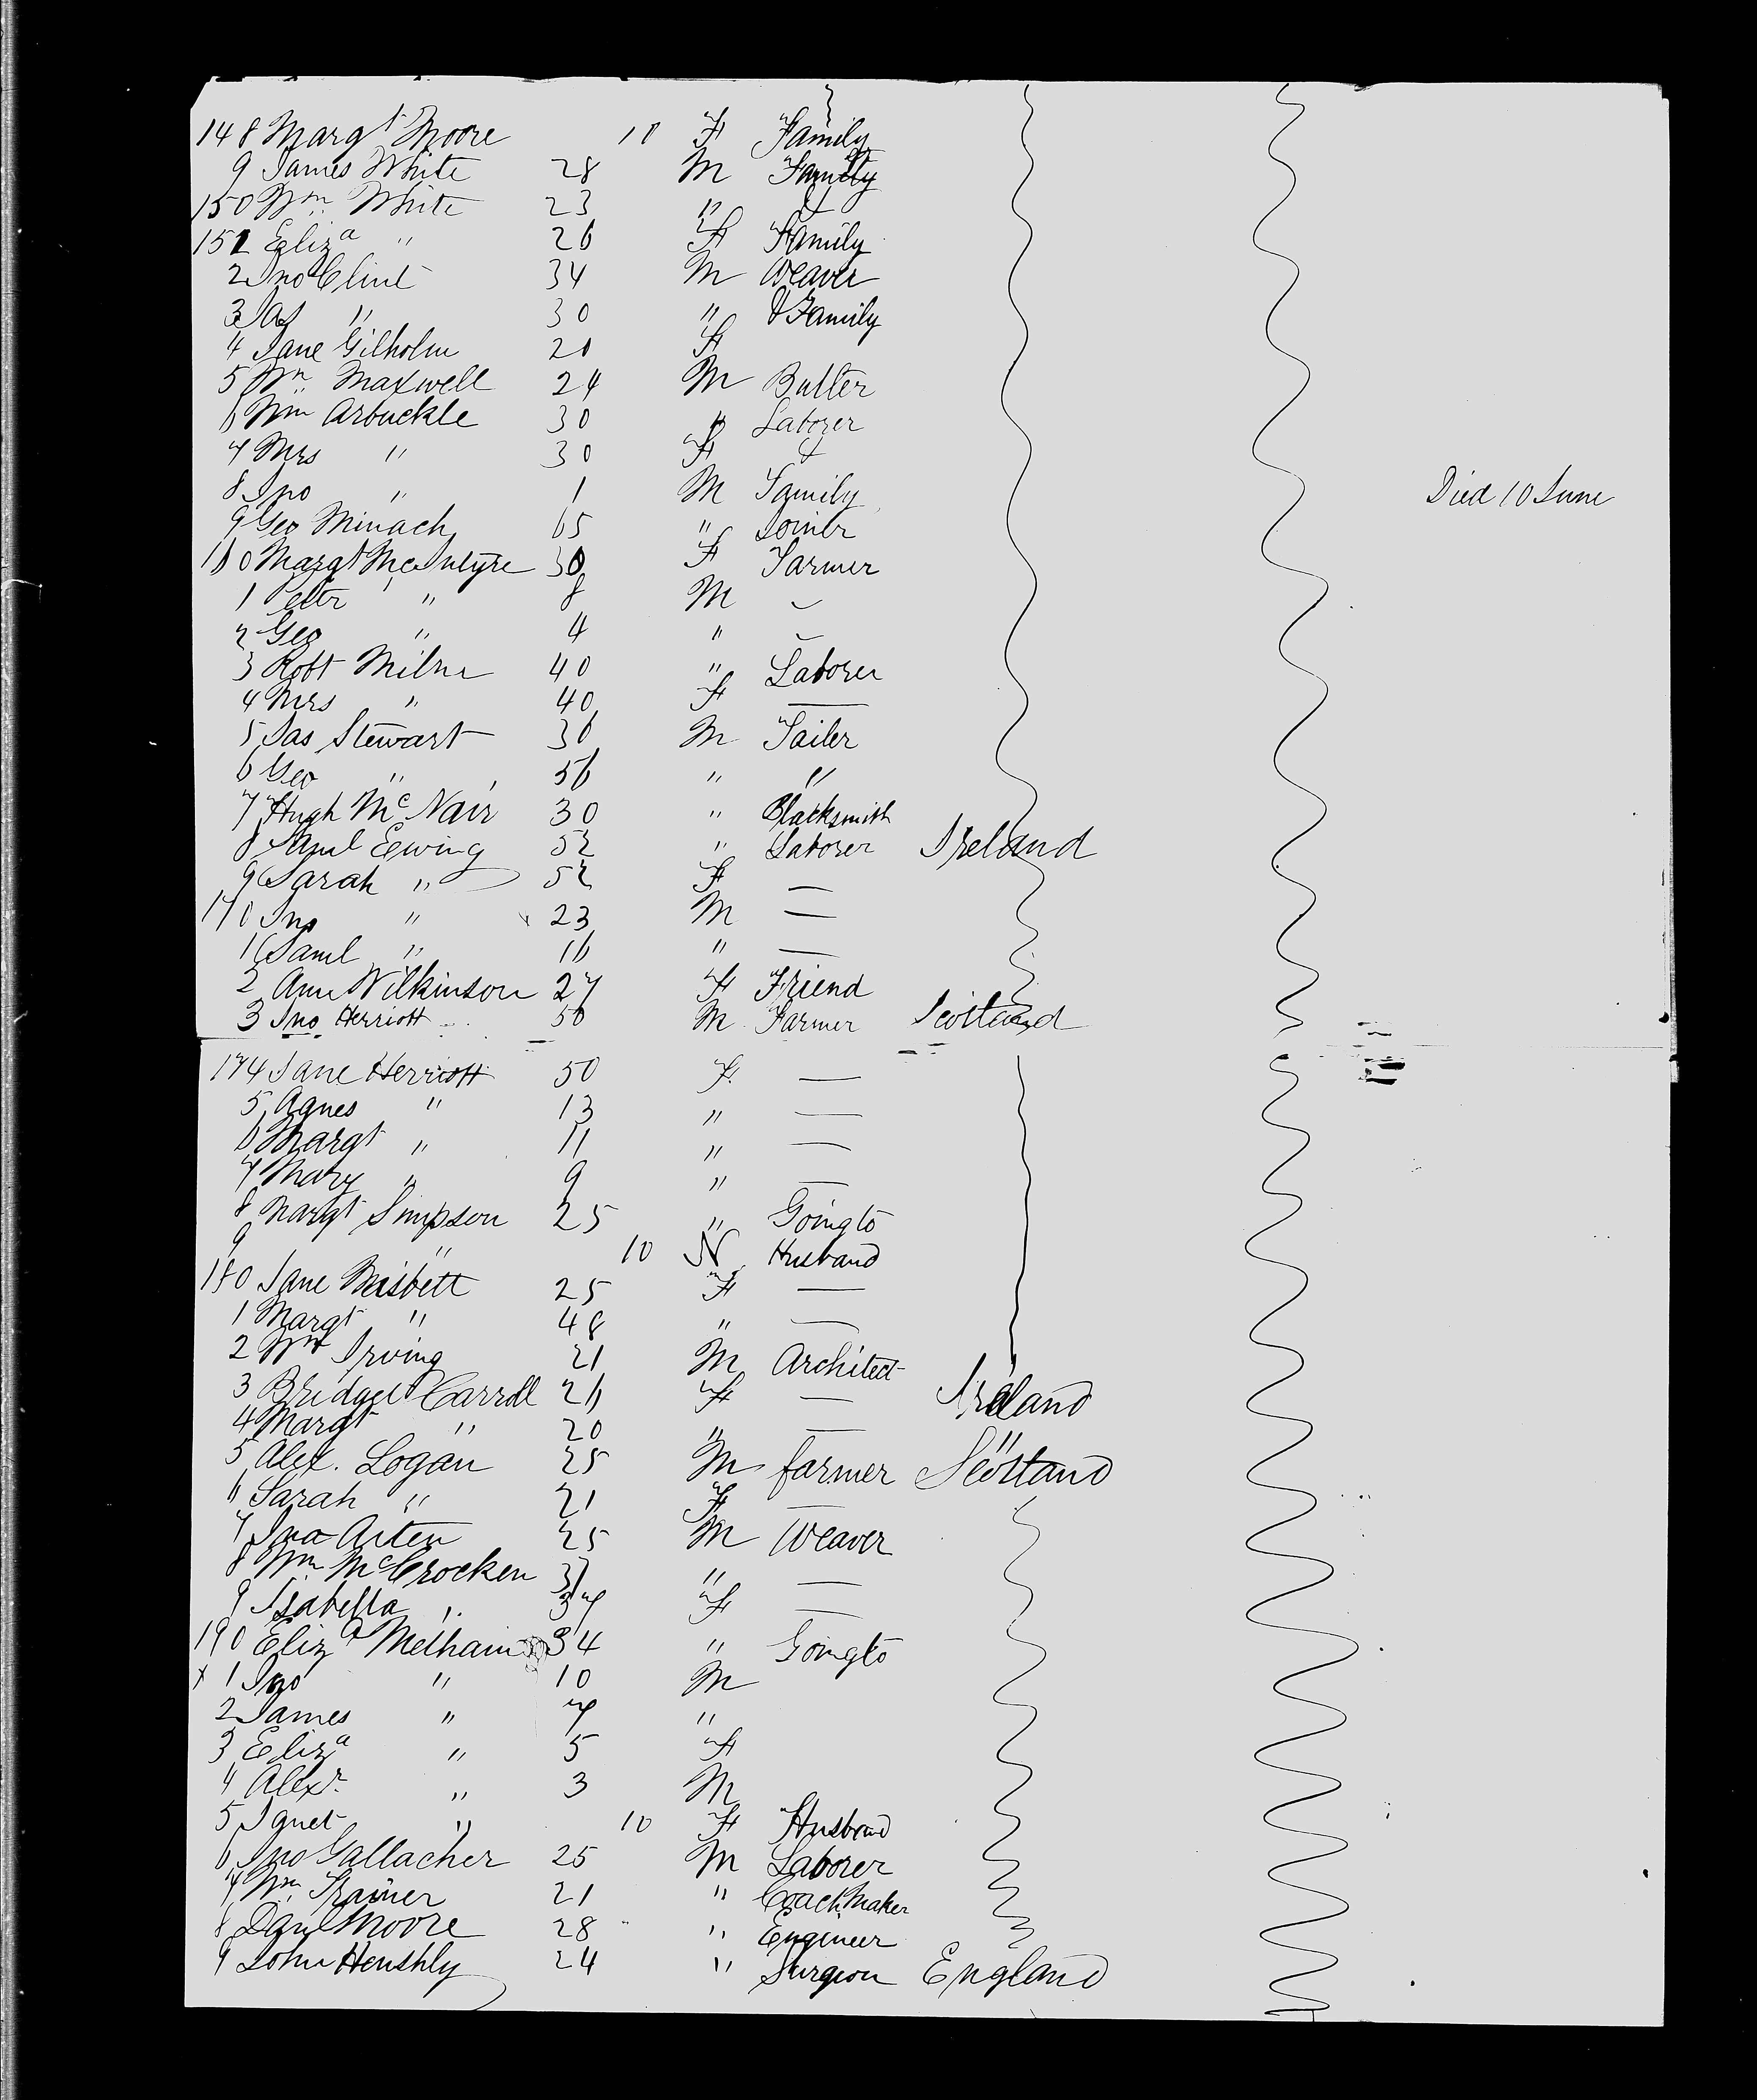 148 Margt Moore 10 F Family
9 James White 28 M Family
150 Wm White 23 " &
151 Eliza " 26 F Family
2 Jno Clint 34 M Weaver
3 Jas " 30 " & Family
4 Jane Gilholm 20 F
5 Wm Maxwell 24 M Butler
6 Wm Arbuckle 30 " Laborer
7 Mrs " 30 F &
8 Jno " 1 M Family Died 10 June
9 Geo Minach 65 " Joiner
160 Margt McIntyre 30 F Farmer
1 Peter " 8 M
2 Geo " 4 "
3 Robt Milne 40 " Laborer
4 Mrs " 40 F —
5 Jas Stewart 36 M Tailer
6 Geo " 56 " "
7 Hugh McNair 30 " Blacksmith
8 Saml Ewing 52 " Laborer Ireland
9 Sarah " 52 F —
170 Jno " 23 M —
1 Saml " 16 " —
2 Ann Wilkinson 27 F Friend
3 Jno Herriott 50 M Farmer Scotland
174 Jane Herriott 50 F. —
5 Agnes " 13 " —
6 Margt " 11 " —
7 Mary " 9 " —
8 Margt Simpson 25 " Going to
9 " 10 Husband
180 Jane Nisbett 25 F —
1 Margt " 48 " —
2 Wm Irving 21 M Architect
3 Bridget Carroll 26 F — Ireland
4 Margt " 20 " — "
5 Alex. Logan 25 M farmer Scotland
6 Sarah " 21 F —
7 Jno Aiten 25 M Weaver
8 Wm McCrocken 37 " —
9 Isabella " 37 F —
190 Eliza Melham 34 " Going to
x 1 Jno " 10 M
2 James " 7 "
3 Eliza " 5 F
4 Alexr " 3 M
5 Janet " 10 F Husband
6 Jno Gallacher 25 M Laborer
7 Wm Trainer 21 " Coach Maker
8 Danl Moore 28 " Engineer
9 John Henshly 24 " Surgeon England